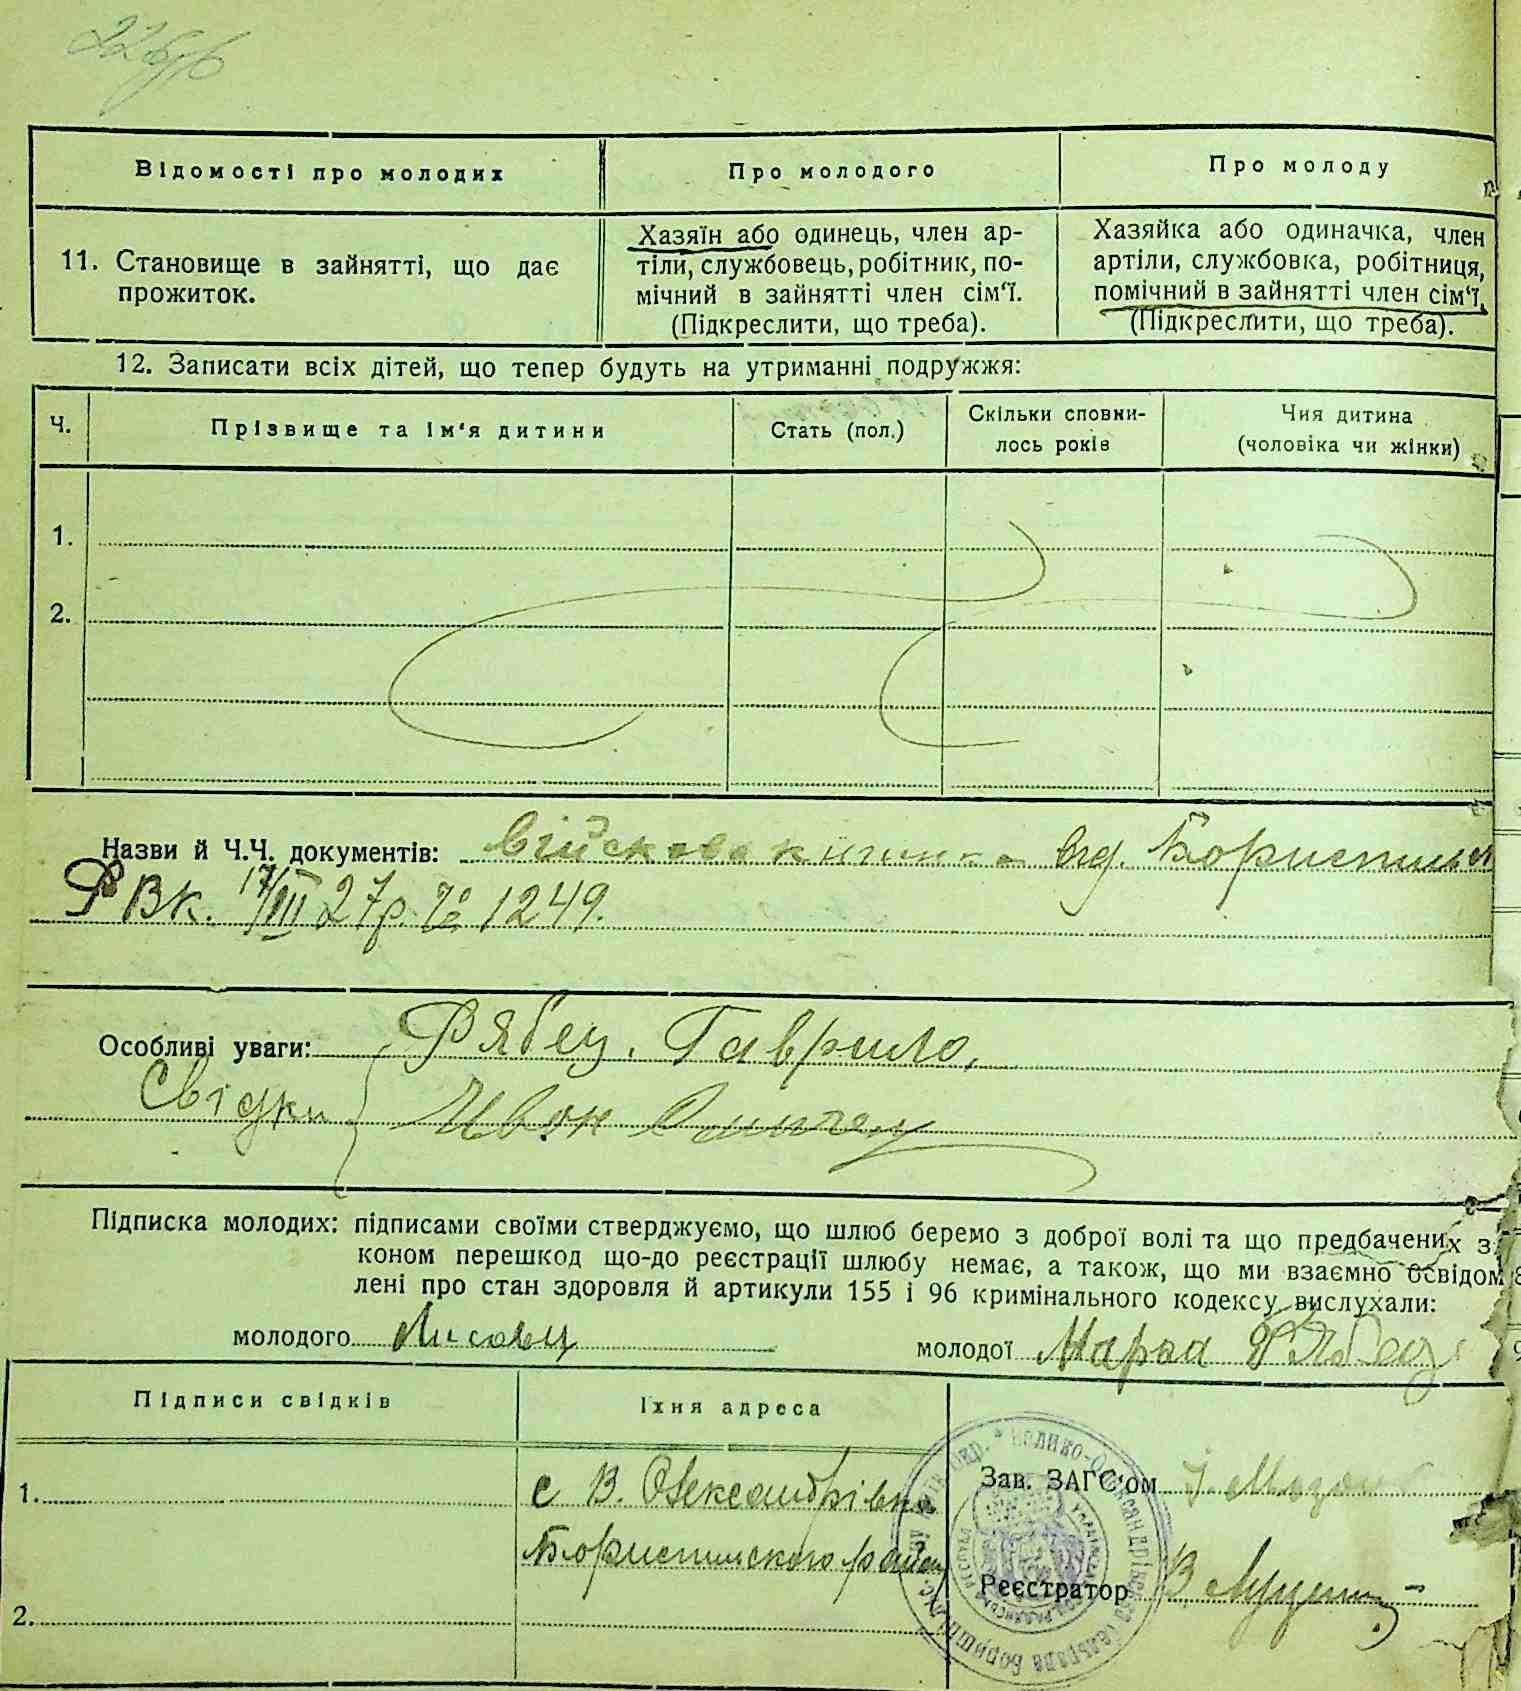 Відомості про молодих
Про молодого
Про молоду
11. Становище в зайнятті, що дає
прожиток.
Хазяїн або одинець, член ар-
тілі, службовець, робітник, по-
мічний в зайнятті член сім'ї.
(Підкреслити, що треба).
Хазяйка або одиначка, член
артіли, службовка, робітниця,
помічний в зайнятті член сім'ї,
(Підкреслити, що треба).
12. Записати всіх дітей, що тепер будуть на утриманні подружжя:
Ч.
Прізвище та ім'я дитини
Стать (пол.)
Скільки сповни-
лось років
Чия дитина
(чоловіка чи жінки)
1.
2.
Назви й Ч.Ч. документів: військова книжка вид. Бориспильск
РВК. 17/III 27р. № 1249.
Особливі уваги: Рябец. Гаврило.
Свідки Иван
Підписка молодих: підписами своїми стверджуємо, що шлюб беремо з доброї волі та що предбачених з
коном перешкод що-до реєстрації шлюбу немає, а також, що ми взаємно освідом
лені про стан здоровля й артикули 155 і 96 кримінального кодексу вислухали:
молодого Лисовец
молодої Марья Рябец
Підписи свідків
Їхня адреса
1.
с В. Олександрівка
Бориспильского району
2.
Зав. ЗАГС'ом
Реєстратор В